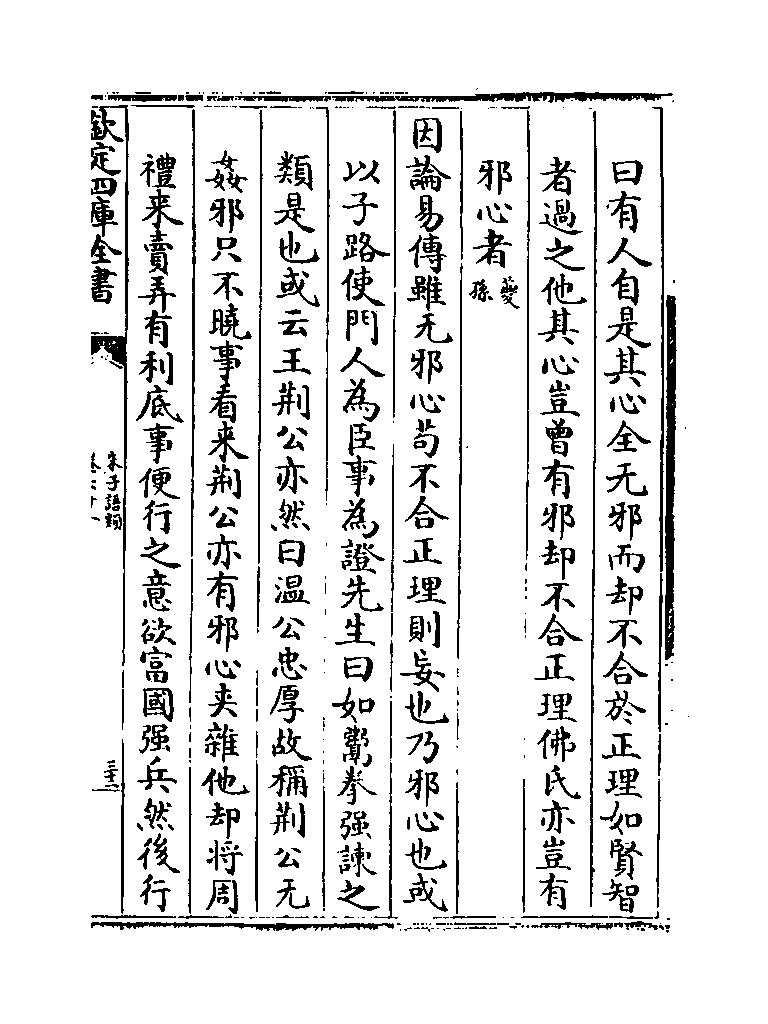 曰有人自是其心全无邪而却不合於正理如賢智
者過之他其心豈曽有邪却不合正理佛氏亦豈有
邪心者 䕫孫
因論易傳雖无邪心茍不合正理則妄也乃邪心也或
以子路使門人為臣事為證先生曰如鬻拳强諫之
類是也或云王荆公亦然曰温公忠厚故稱荆公无
姦邪只不曉事看来荆公亦有邪心夹雜他却将周
禮来賣弄有利底事便行之意欲富國强兵然後行
欽定四庫全書
朱子語類
卷七十一